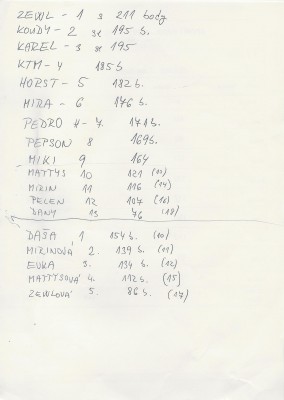 ZEWL - 1 s 211 body
KOUDY - 2 se 195 b.
KAREL - 3 se 195
KTM - 4 185b
HORST - 5 182 b.
MIRA - 6 176 b.
PEDRO # - 7 171 b.
PEPSON 8 169b.
MIKI 9 164
MATTYS 10 121 (11)
MIRIN 11 116 (14)
PELEN 12 104 (16)
DANY 13 76 (18)
DAŠA 1 154 b. (10)
MIRINOVÁ 2. 139 b. (11)
EVKA 3. 134 b. (12)
MATTYSOVÁ 4. 112 b. (15)
ZEWLOVÁ 5. 86 b. (17)